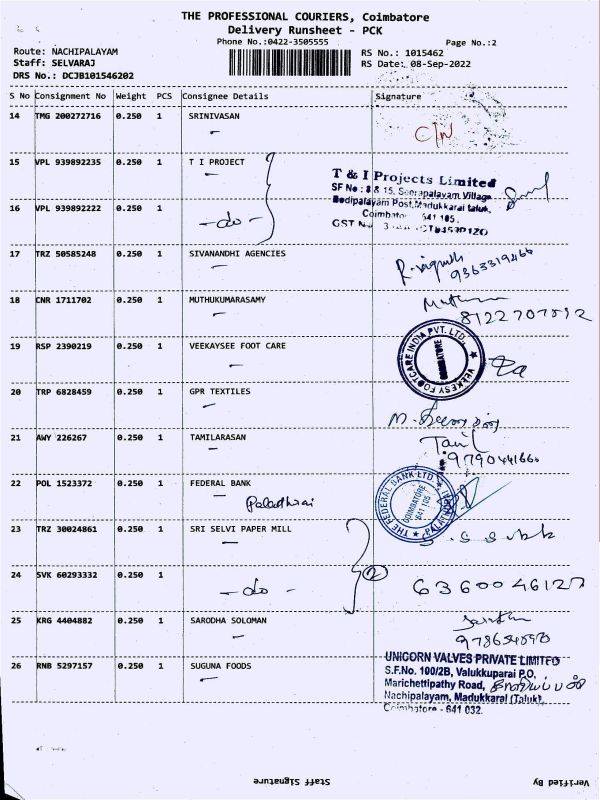 THE PROFESSIONAL COURIERS, Coimbatore
Delivery Runsheet - PCK
Phone No.:0422-3505555
Page No.:2
Route: NACHIPALAYAM
Staff: SELVARAJ
DRS No.: DCJB101546202
RS No.: 1015462
RS Date: 08-Sep-2022
S No Consignment No Weight PCS Consignee Details Signature
14 TMG 200272716 0.250 1 SRINIVASAN
C/N
15 VPL 939892235 0.250 1 T I PROJECT
T & I Projects Limited
SF No : 8 & 15, Seerapalayam Village
Bodipalayam Post, Madukkarai taluk,
Coimbatore 641 105.
GST No
16 VPL 939892222 0.250 1 -do-
17 TRZ 50585248 0.250 1 SIVANANDHI AGENCIES
9363319466
18 CNR 1711702 0.250 1 MUTHUKUMARASAMY
8122707592
19 RSP 2390219 0.250 1 VEEKAYSEE FOOT CARE
VEEKESY FOOTCARE INDIA PVT. LTD.
COIMBATORE
20 TRP 6828459 0.250 1 GPR TEXTILES
21 AWY 226267 0.250 1 TAMILARASAN
Tamil
9790441660
22 POL 1523372 0.250 1 FEDERAL BANK
Paladhurai
THE FEDERAL BANK LTD
COIMBATORE
641 105
23 TRZ 30024861 0.250 1 SRI SELVI PAPER MILL
24 SVK 60293332 0.250 1 -do-
2
6360046127
25 KRG 4404882 0.250 1 SARODHA SOLOMAN
26 RNB 5297157 0.250 1 SUGUNA FOODS
UNICORN VALVES PRIVATE LIMITED
S.F.No. 100/2B, Valukkuparai P.O,
Marichettipathy Road,
Nachipalayam, Madukkarai (Taluk),
Coimbatore - 641 032.
Staff Signature
Verified By